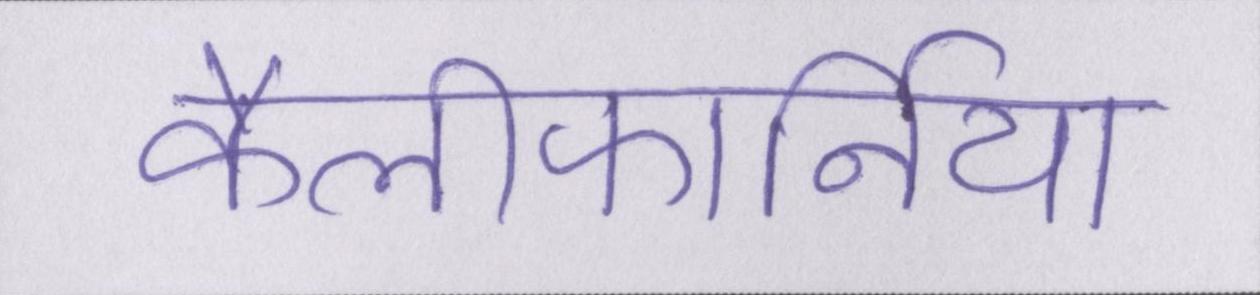 कैलीफार्निया